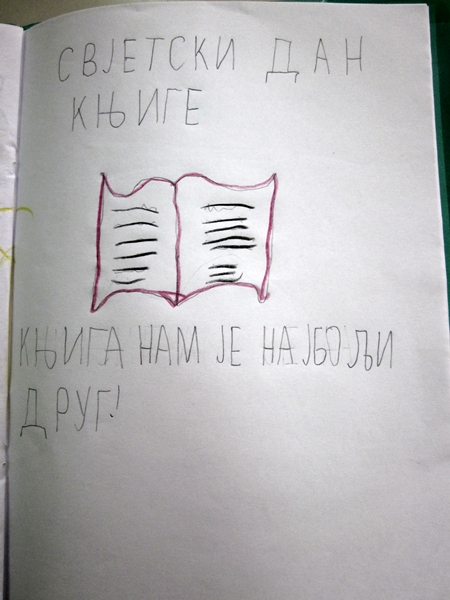 СВЈЕТСКИ ДАН
КЊИГЕ
КЊИГА НАМ ЈЕ НАЈБОЉИ
ДРУГ!